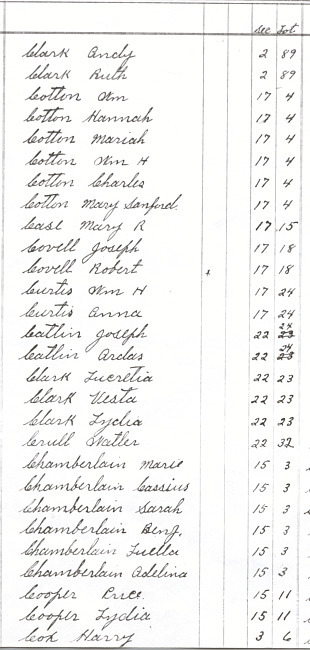 Sec Lot
Clark Andy 2 89
Clark Ruth 2 89
Cotton Wm 17 4
Cotton Hannah 17 4
Cotton Mariah 17 4
Cotton Wm H 17 4
Cotton Charles 17 4
Cotton Mary Sanford. 17 4
Case Mary R 17 15
Covell Joseph 17 18
Covell Robert 17 18
Curtis Wm H 17 24
Curtis Anna 17 24
Catlin Joseph 22 24 23
Catlin Ardas 22 24 23
Clark Lucretia 22 23
Clark Vesta 22 23
Clark Lydia 22 23
Crull 22 32
Chamberlain Marie 15 3
Chamberlain Cassius 15 3
Chamberlain Sarah 15 3
Chamberlain Benj. 15 3
Chamberlain Luella 15 3
Chamberlain Adelina 15 3
Cooper Price 15 11
Cooper Lydia 15 11
Cox Harry 3 6